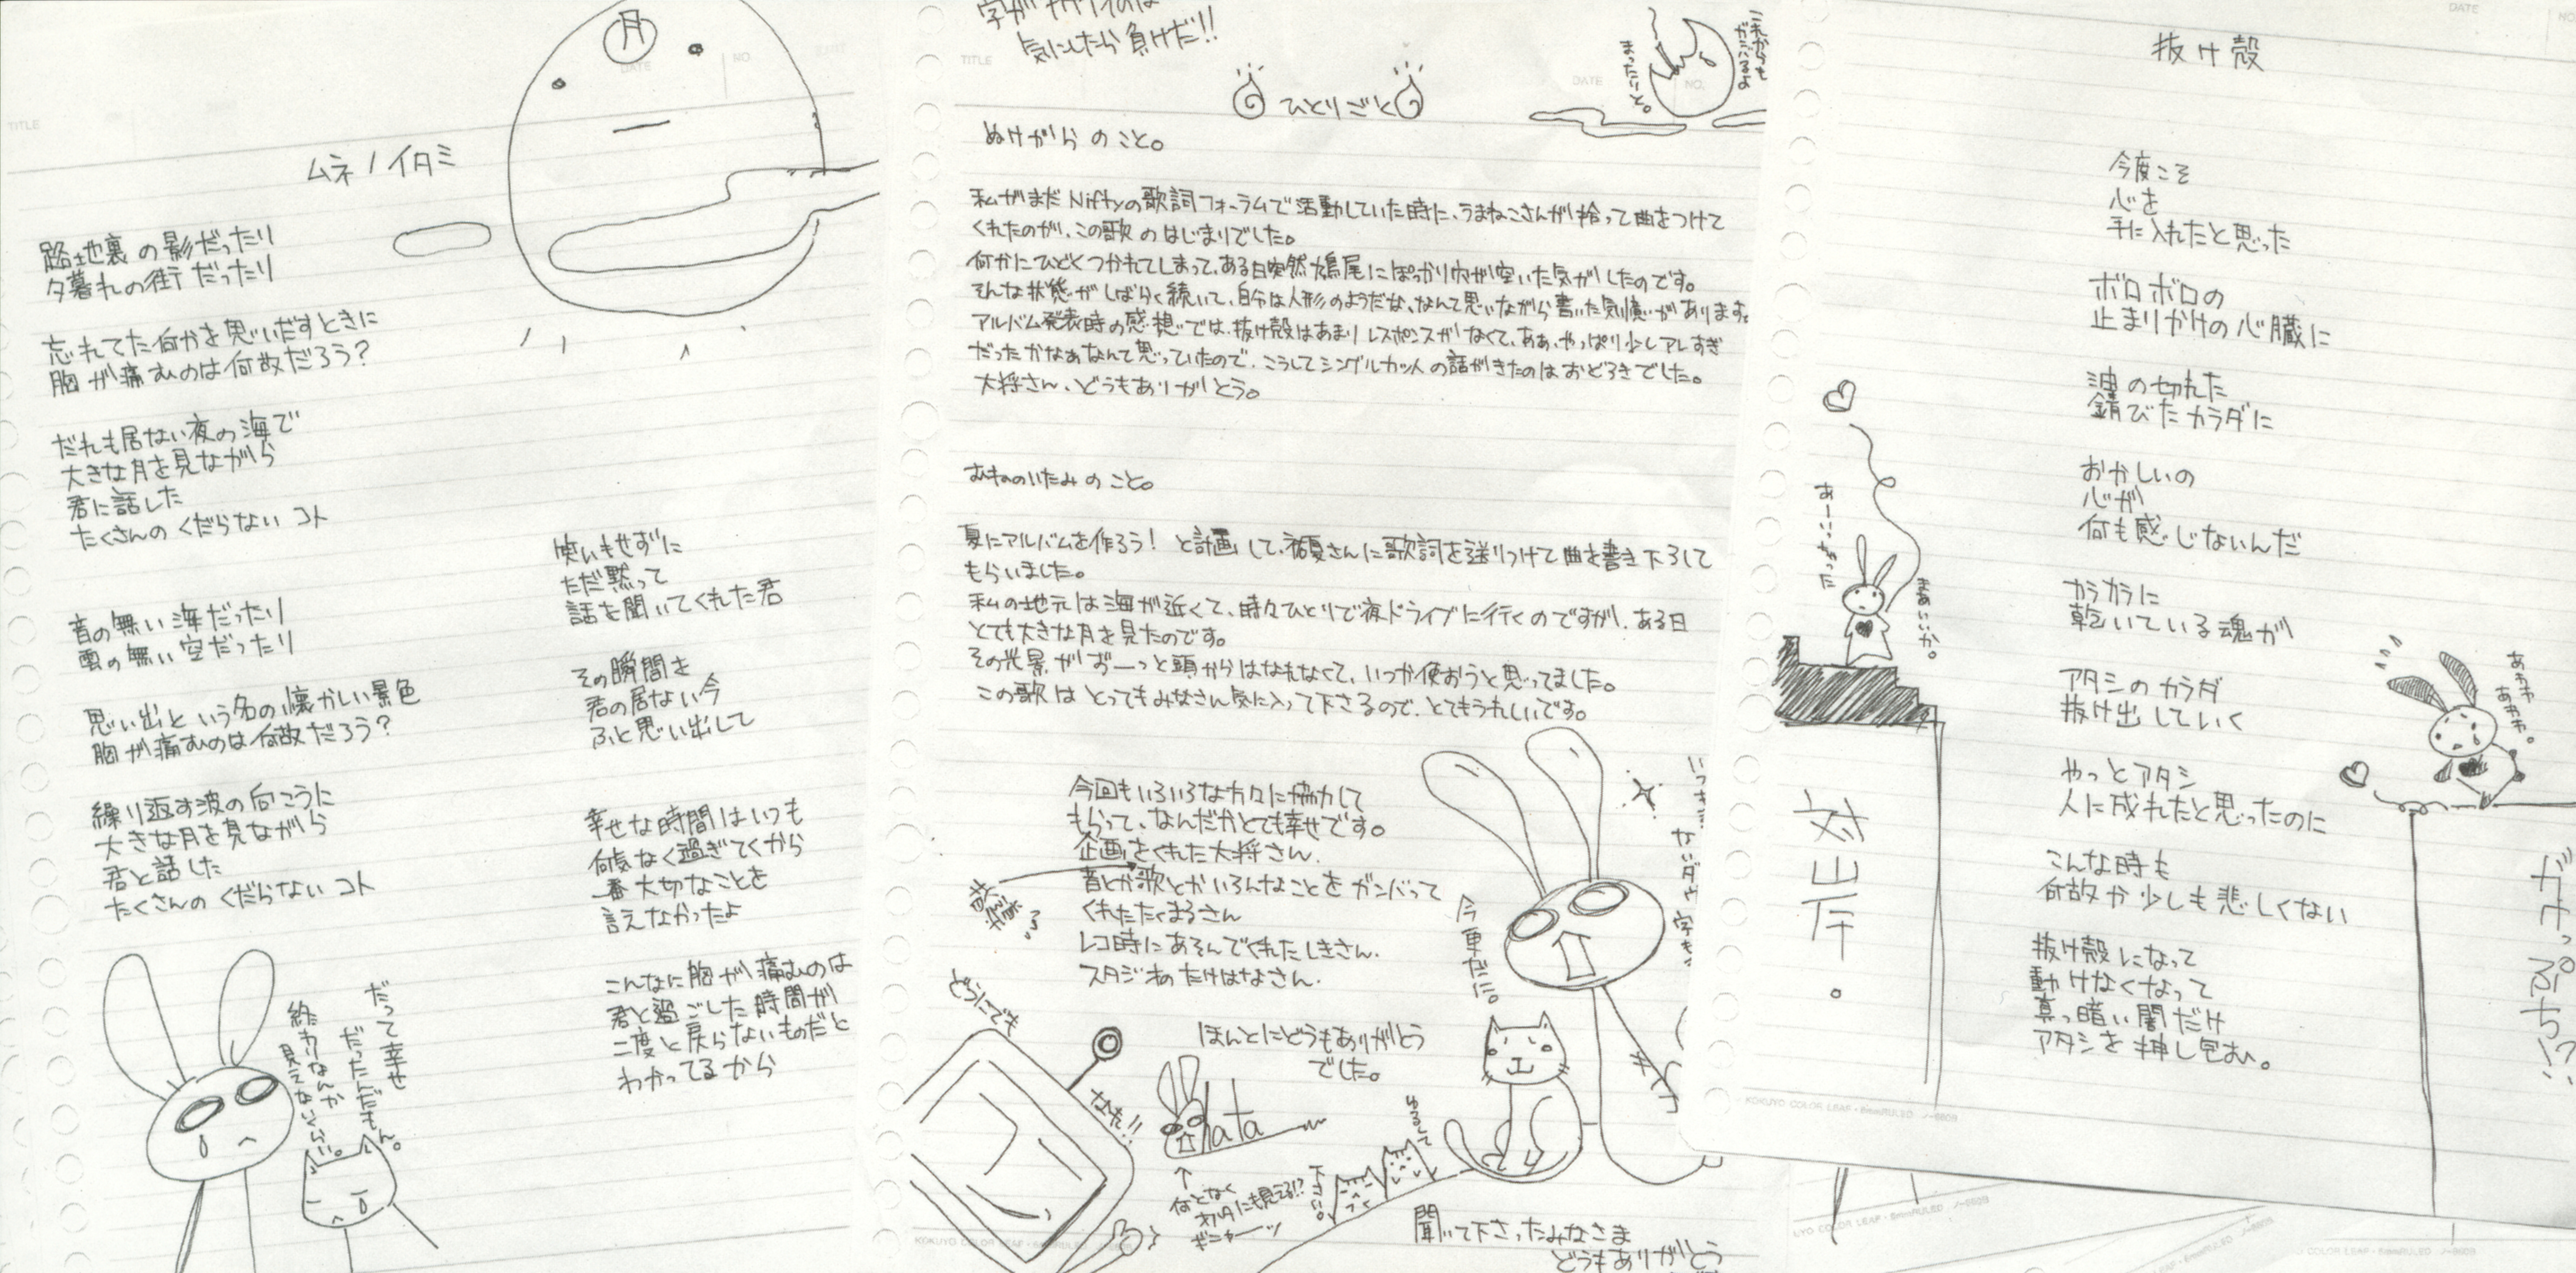 TITLE
DATE
NO.
月
ムネノイタミ
路地裏の影だったり
夕暮れの街だったり
忘れてた何かを思いだすときに
胸が痛むのは何故だろう?
だれも居ない夜の海で
大きな月を見ながら
君に話した
たくさんのくだらないコト
音の無い海だったり
雲の無い空だったり
思い出という名の懐かしい景色
胸が痛むのは何故だろう?
繰り返す波の向こうに
大きな月を見ながら
君と話した
たくさんのくだらないコト
笑いもせずに
ただ黙って
話を聞いてくれた君
その瞬間を
君の居ない今
ふと思い出して
幸せな時間はいつも
何気なく過ぎてくから
一番大切なことを
言えなかったよ
こんなに胸が痛むのは
君と過ごした時間が
二度と戻らないものだと
わかってるから
だって幸せ
だったんだもん。
終わりなんか
見えないくらい。
字が
気にしたら負けだ!!
TITLE
DATE
NO.
これからも
がんばるよ
まったりと。
ひとりごと
ぬけがらのこと。
私がまだNiftyの歌詞フォーラムで活動していた時に、うまねこさんが拾って曲をつけて
くれたのが、この歌のはじまりでした。
何かにひどくつかれてしまって、ある日突然鳩尾にぽっかり穴が空いた気がしたのです。
そんな状態がしばらく続いて、自分は人形のようだな、なんて思いながら書いた気憶があります。
アルバム発表時の感想では、抜け殻はあまりレスポンスがなくて、ああ、やっぱり少しアレすぎ
だったかなぁなんて思っていたので、こうしてシングルカットの話がきたのはおどろきでした。
大将さん、どうもありがとう。
むねのいたみのこと。
夏にアルバムを作ろう!と計画して、さんに歌詞を送りつけて曲を書き下ろして
もらいました。
私の地元は海が近くて、時々ひとりで夜ドライブに行くのですが、ある日
とても大きな月を見たのです。
その光景がずーっと頭からはなれなくて、いつか使おうと思ってました。
この歌はとってもみなさん気に入って下さるので、とてもうれしいです。
今回もいろいろな方々に協力して
もらって、なんだかとても幸せです。
企画をくれた大将さん、
音とか歌とかいろんなことをガンバって
くれたたくまるさん
レコ時にあそんでくれたしきさん、
スタジオのたけはなさん、
ほんとにどうもありがとう
でした。
どうにでも
なれ!!
今更だに。
hata
↑
何となく
オバQにも見える!?
ギニャーッ
ゆるして
下さい。
聞いて下さったみなさま
どうもありがとう
KOKUYO COLOR LEAF・6mmRULED ノ-860B
DATE
NO.
抜け殻
今度こそ
心を
手に入れたと思った
ボロボロの
止まりかけの心臓に
の切れた
錆びたカラダに
おかしいの
心が
何も感じないんだ
カラカラに
乾いている魂が
アタシのカラダ
抜け出していく
やっとアタシ
人に成れたと思ったのに
こんな時も
何故か少しも悲しくない
抜け殻になって
動けなくなって
真っ暗い闇だけ
アタシを押し包む。
あーいっちゃった
まあいいか。
対岸。
あわわ
あわわ。
ガケっぷち!?
KOKUYO COLOR LEAF・6mmRULED ノ-860B